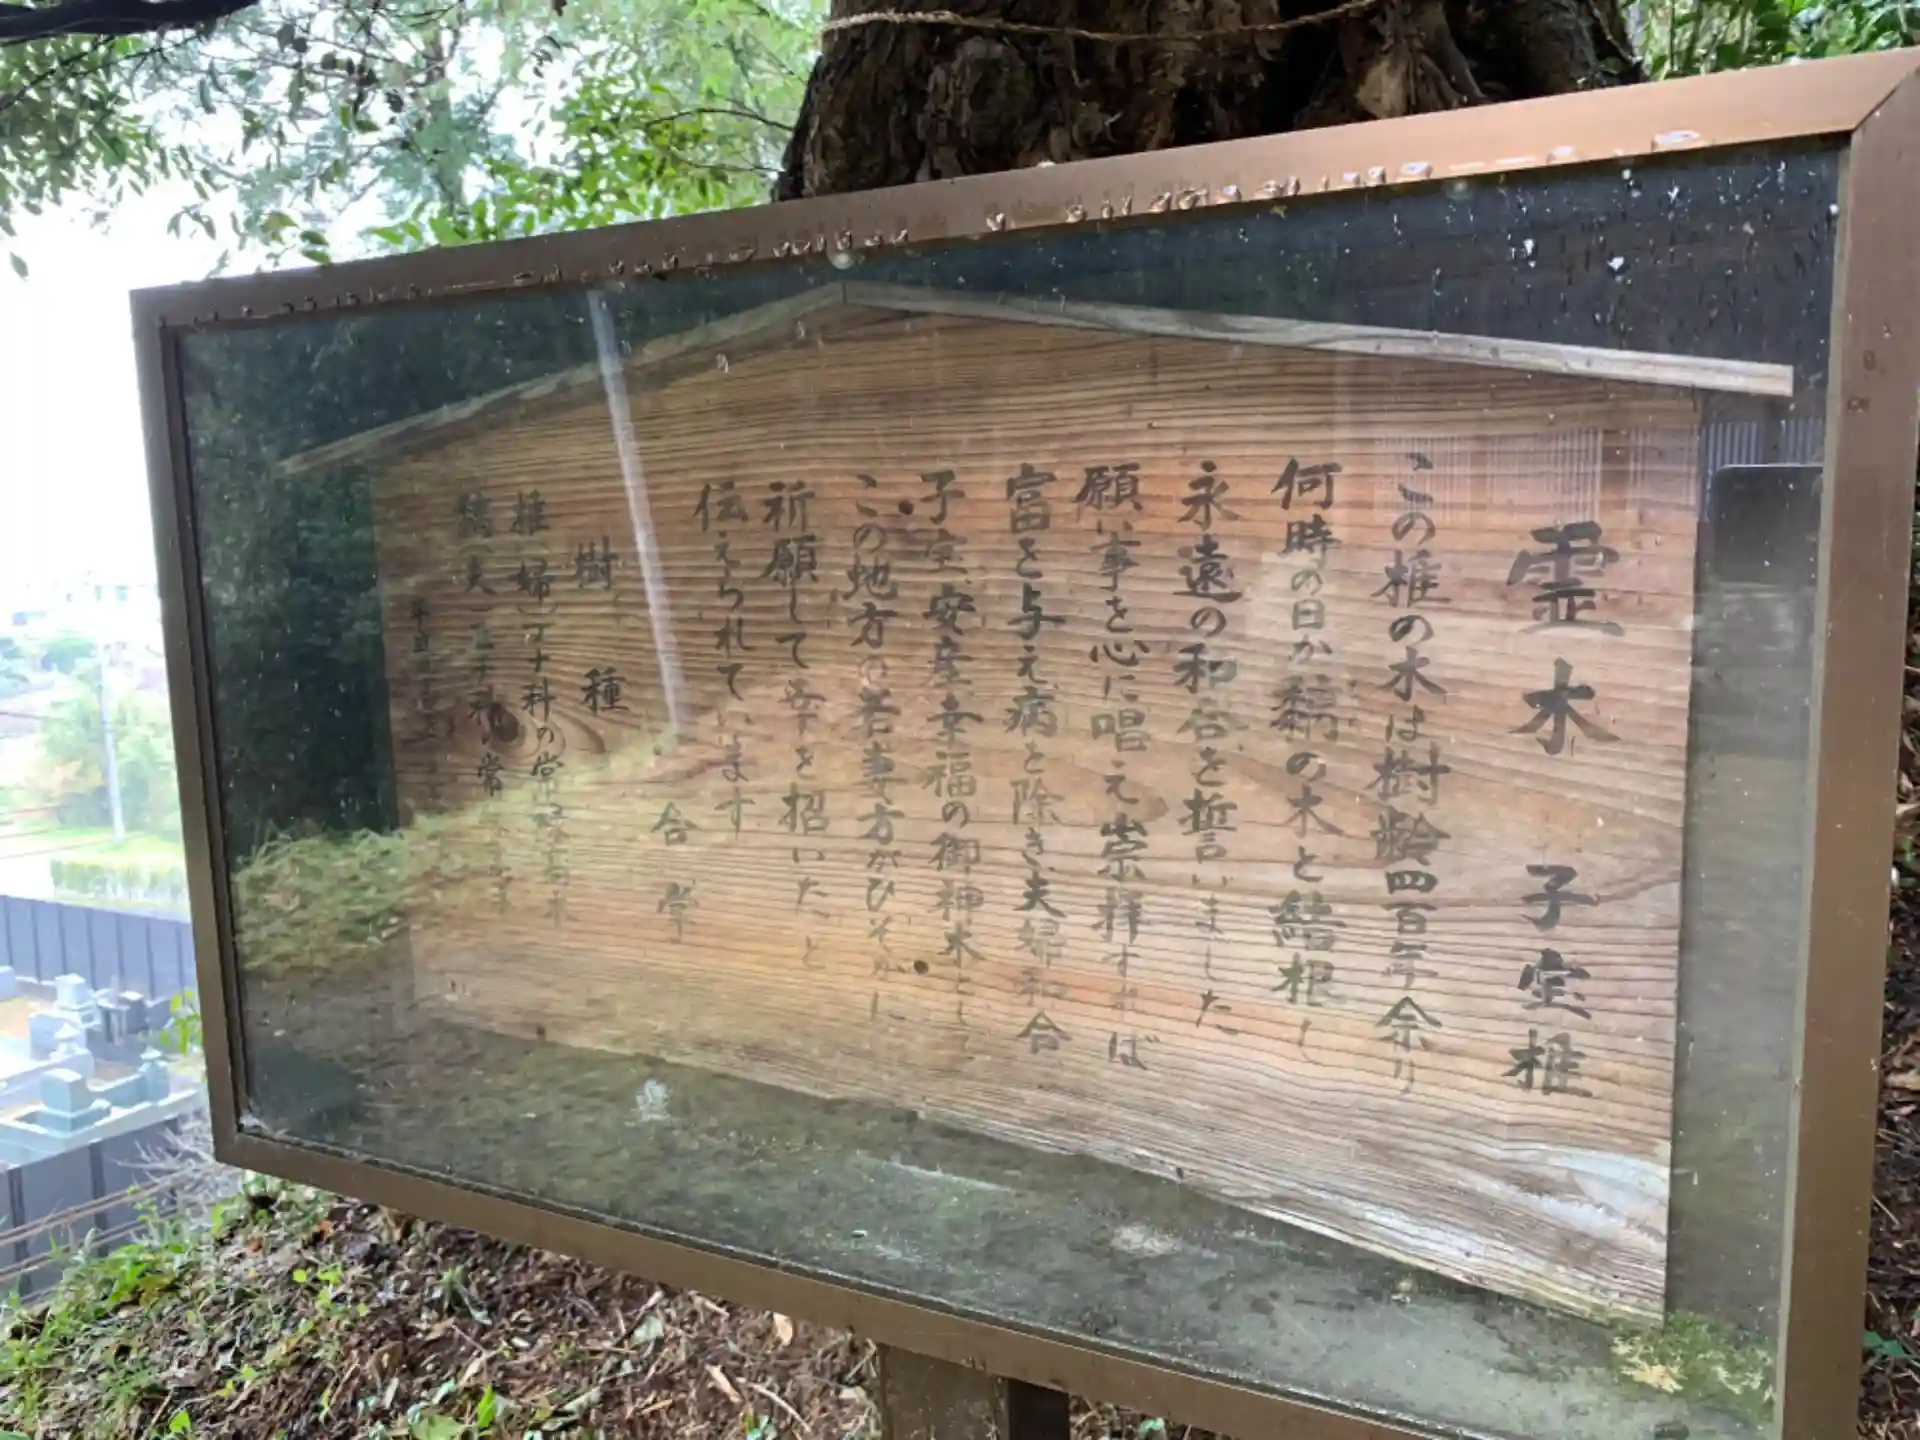 霊木 子宝椎
この椎の木は樹齢四百年余り
何時の日か黐の木と結根し
永遠の和合を誓いました
願い事を心に唱え崇拝すれば
富を与え病を除き夫婦和合
子宝、安産幸福の御神木とし
この地方の若妻方がひそかに
祈願して幸を招いたと
伝えられています
合掌
樹種
椎（婦）ブナ科の常緑高木
黐（夫）モチ科の常
平成